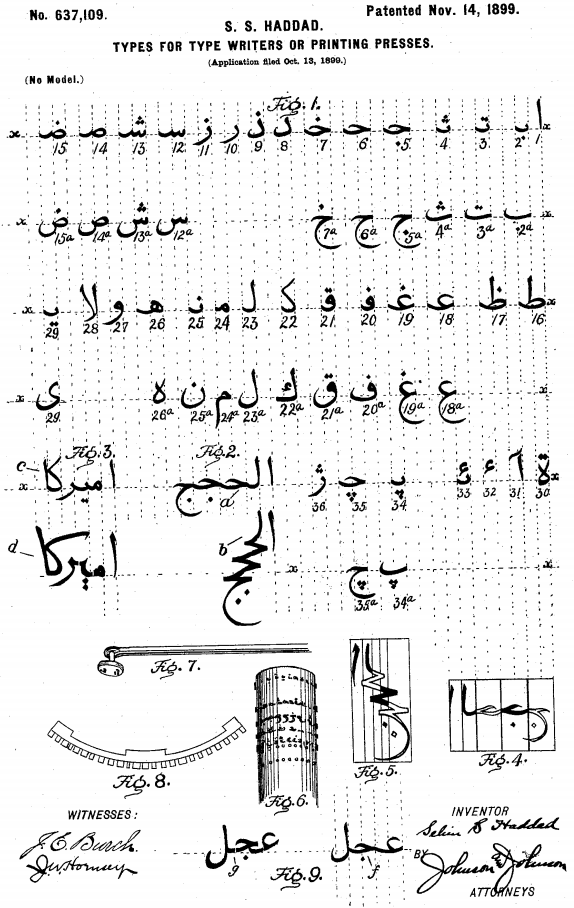 No. 637,109.
Patented Nov. 14, 1899.
S. S. HADDAD.
TYPES FOR TYPE WRITERS OR PRINTING PRESSES.
(Application filed Oct. 13, 1899.)
(No Model.)
Fig. 1.
x ا ب ت ث ج ح خ د ذ ر ز س ش ص ض x
1 2 3 4 5 6 7 8 9 10 11 12 13 14 15
x ب ت ث ج ح خ س ش ص ض x
2a 3a 4a 5a 6a 7a 12a 13a 14a 15a
x ط ظ ع غ ف ق ك ل م ن ه و لا ي x
16 17 18 19 20 21 22 23 24 25 26 27 28 29
x ع غ ف ق ك ل م ن ه ى x
18a 19a 20a 21a 22a 23a 24a 25a 26a 29
Fig. 3. Fig. 2.
c اميركا x
الحجج a
ة آ ء ئ پ چ ژ x
30 31 32 33 34 35 36
d اميركا
b الحجج
x پ چ x
34a 35a
Fig. 7.
Fig. 8.
Fig. 6.
Fig. 5.
Fig. 4.
WITNESSES:
J. E. Burch.
INVENTOR
Selim S Haddad
عجل عجل
g Fig. 9. f
BY
Johnson & Johnson
ATTORNEYS